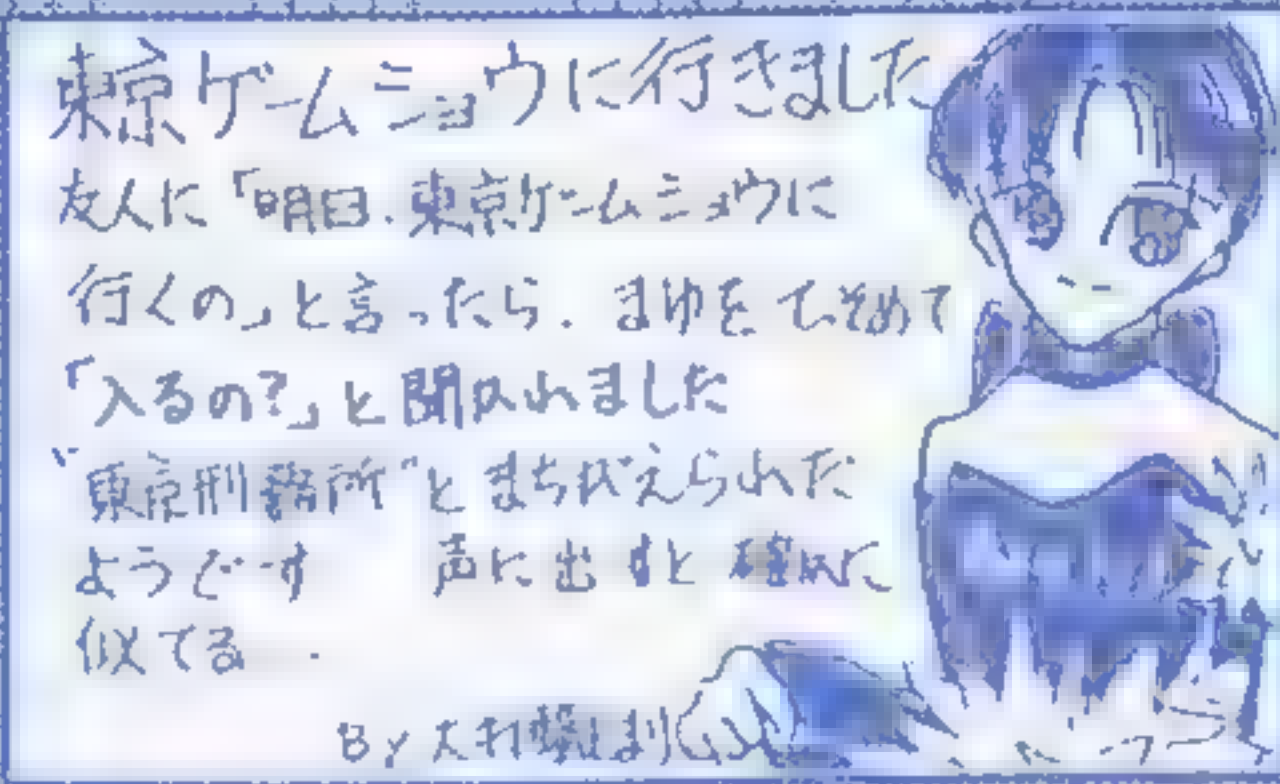 東京ゲームショウに行きました
友人に「明日、東京ゲームショウに
行くの」と言ったら、まゆをひそめて
「入るの?」と聞かれました
"東京刑務所"とまちがえられた
ようです 声に出すと確かに
似てる
By